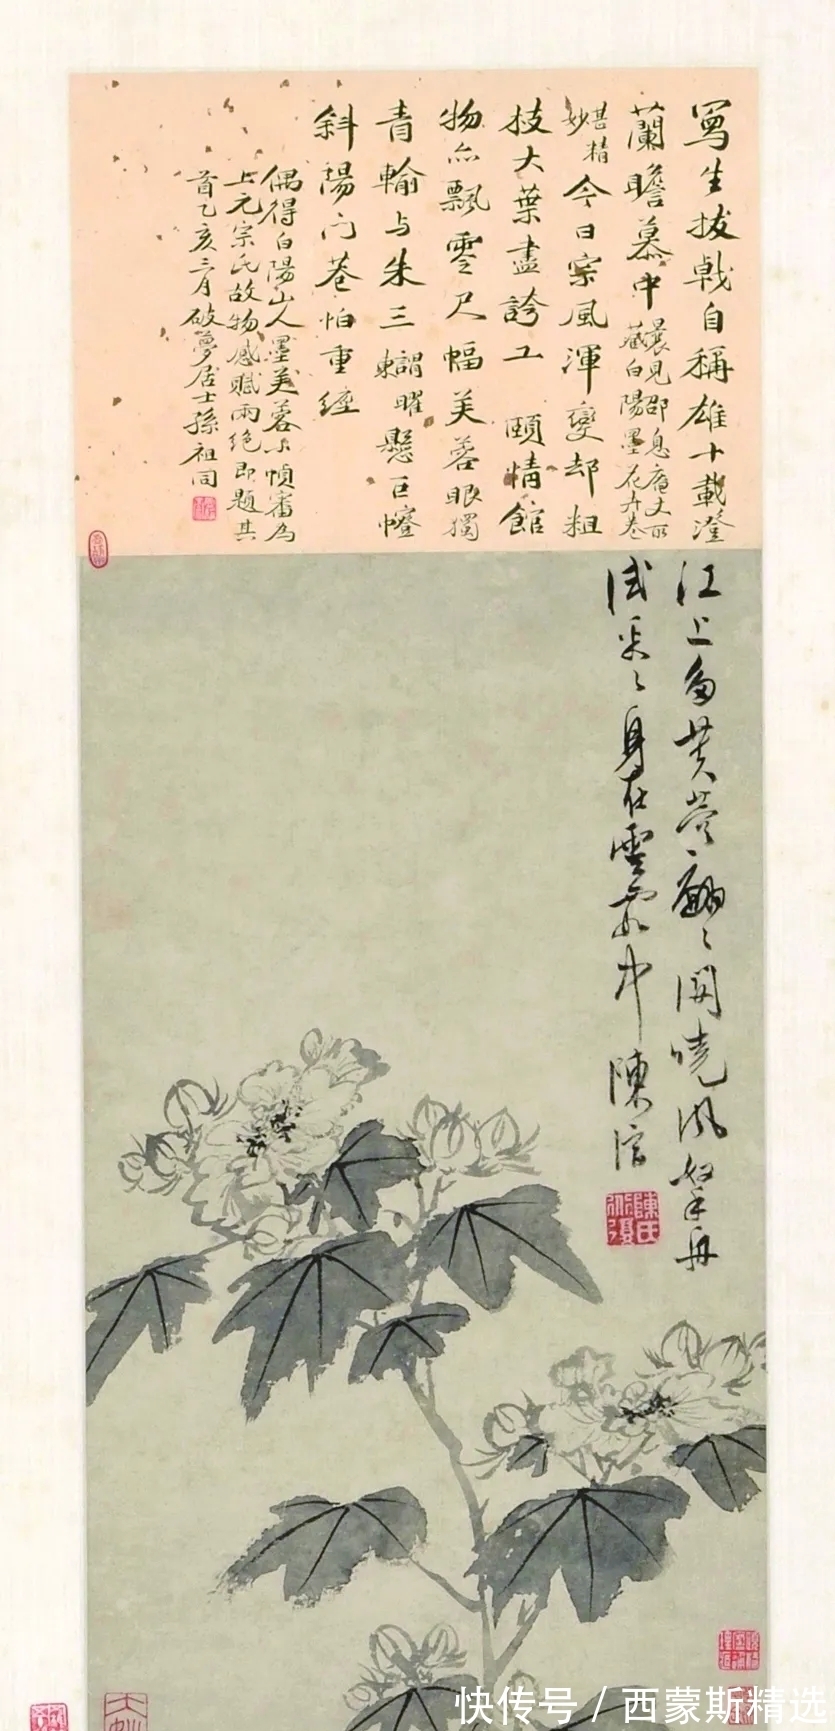 寫生拔戟自稱雄十載澄
蘭瞻慕中曩見邵息庵丈所
藏白陽墨花卉卷
甚精
妙今日宗風渾變却粗
枝大葉盡誇工 頤情館
物亦飄零尺幅芙蓉眼獨
青輸与朱三謂曜
東懸巨幢
斜陽門巷怕重經
偶得白陽山人墨芙蓉小幀審為
上元宗氏故物感賦兩絕即題其
首乙亥三月破夢居士孫祖同
江上多芙蓉翩翩開曉風如乘舟
試采之身在雲霞中 陳淳
陳氏
快传号 / 西蒙斯精选